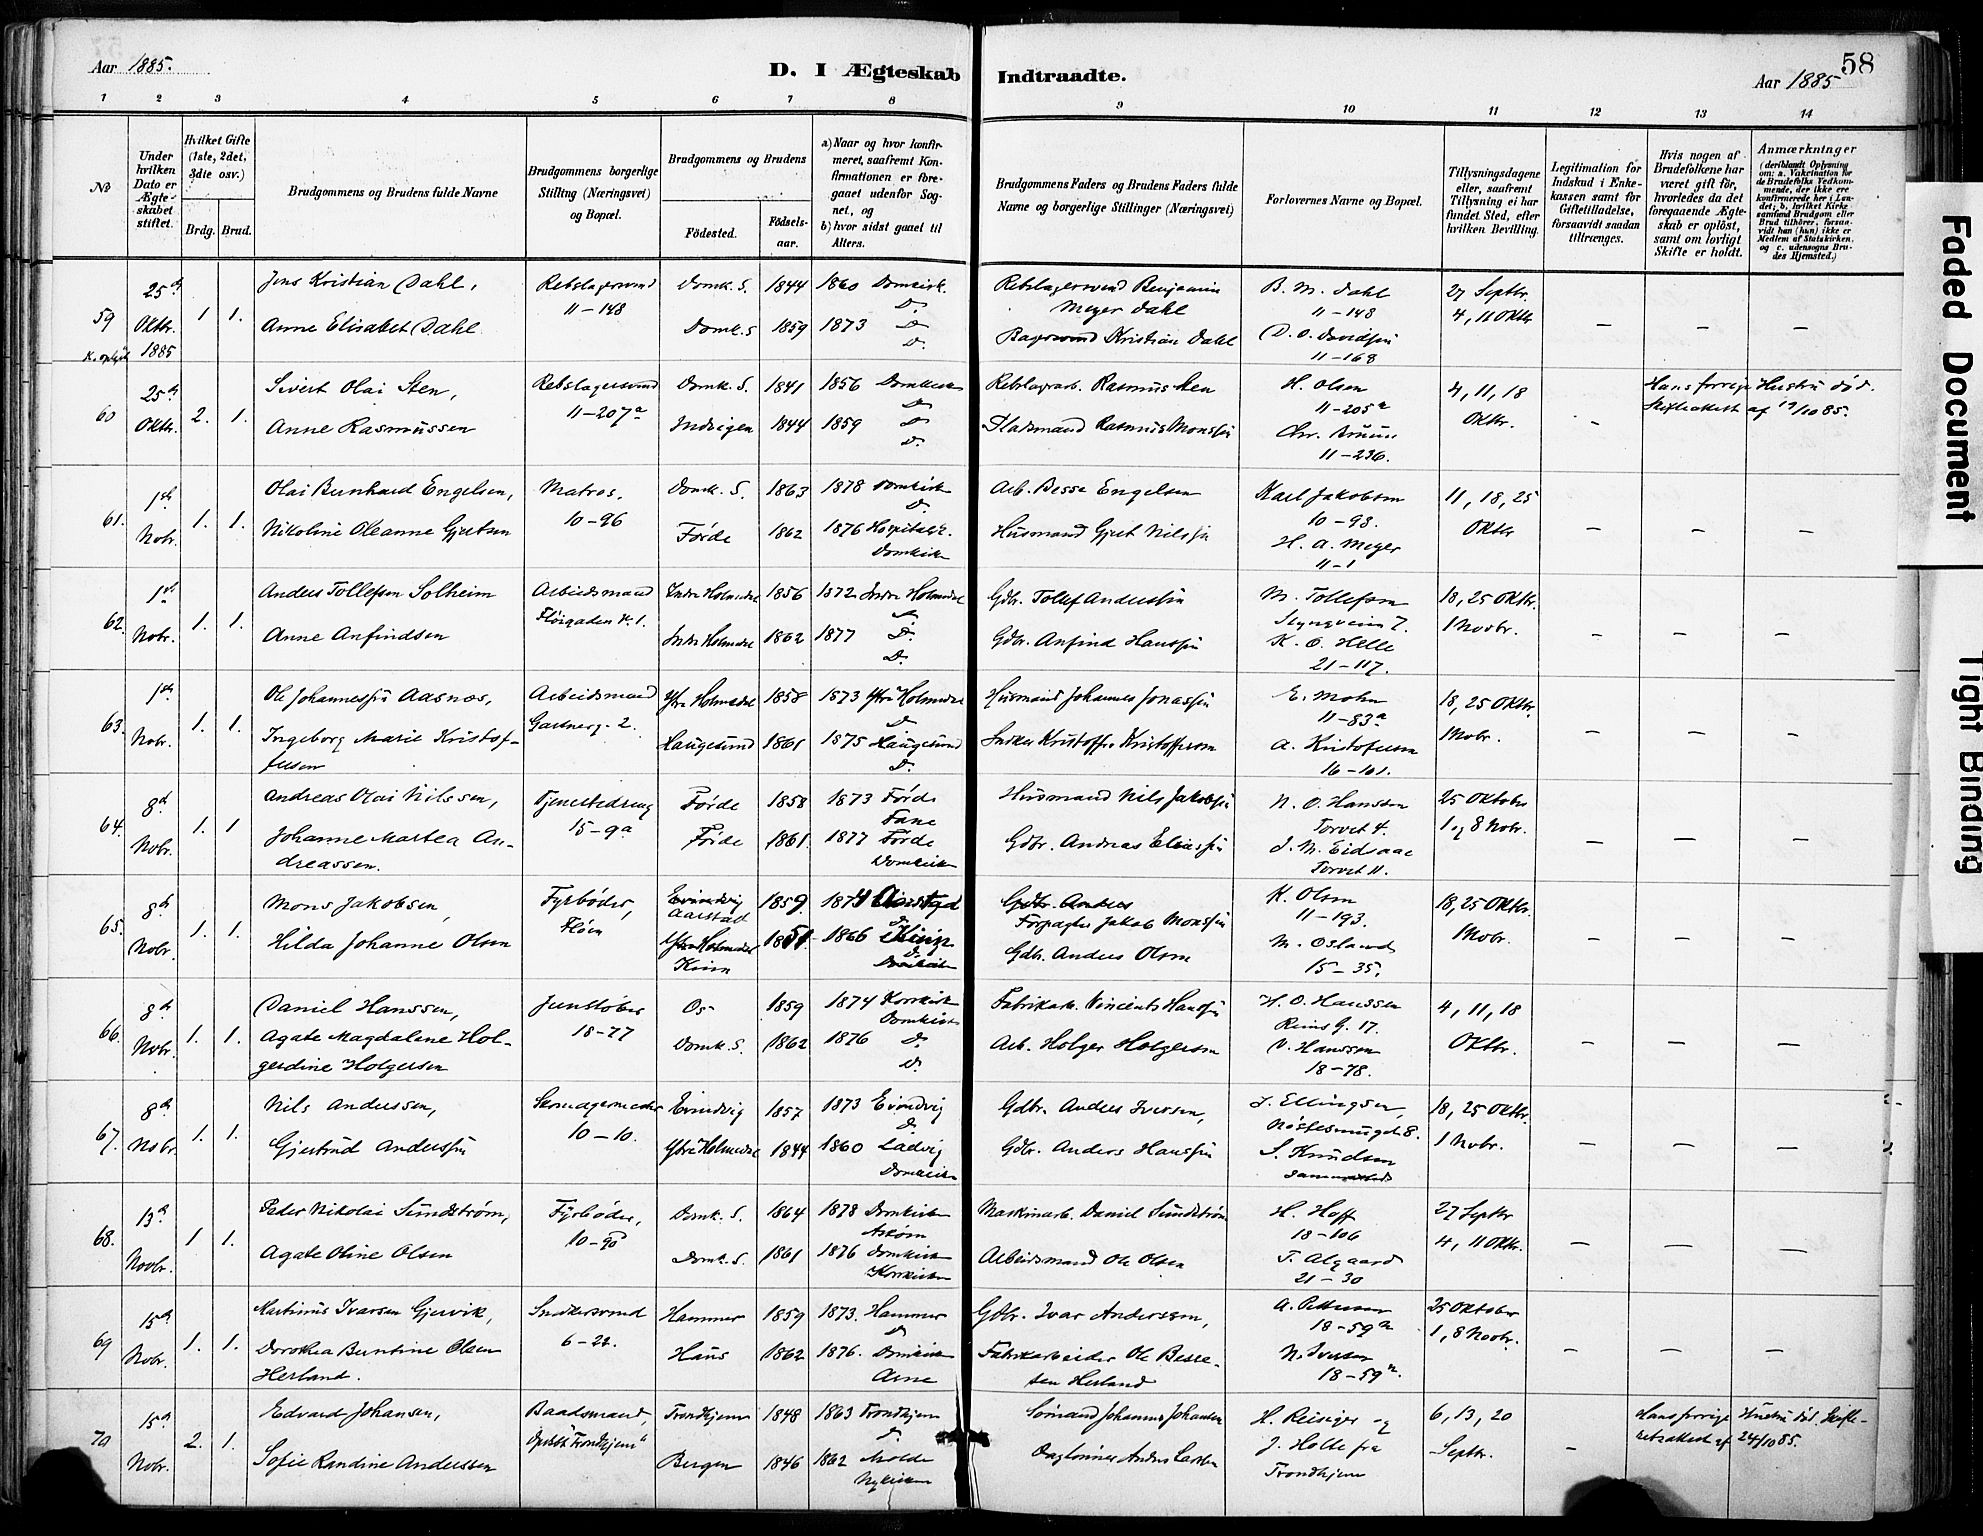 58
Aar 1885.
D. I Ægteskab Indtraadte.
Aar 1885
1 2 3 4 5 6 7 8 9 10 11 12 13 14
No
Under hvilken Dato er Ægteskabet stiftet.
Hvilket Gifte (1ste, 2det, 3die osv.)
Brdg. Brud.
Brudgommens og Brudens fulde Navne
Brudgommens borgerlige Stilling (Næringsvei) og Bopæl.
Brudgommens og Brudens
Fødested. Fødsels-aar.
a) Naar og hvor konfirmeret, saafremt Konfirmationen er foregaaet udenfor Sognet, og
b) hvor sidst gaaet til Alters.
Brudgommens Faders og Brudens Faders fulde Navne og borgerlige Stillinger (Næringsvei)
Forlovernes Navne og Bopæl.
Tillysningsdagene eller, saafremt Tillysning ei har fundet Sted, efter hvilken Bevilling.
Legitimation for Indskud i Enkekassen samt for Giftetilladelse, forsaavidt saadan tiltrænges.
Hvis nogen af Brudefolkene har været gift før, hvorledes da det foregaaende Ægteskab er opløst, samt om lovligt Skifte er holdt.
Anmærkninger
(deriblandt Oplysning om: a. Vakcination for de Brudefolks Vedkommende, der ikke ere konfirmerede her i Landet; b. hvilket Kirkesamfund Brudgom eller Brud tilhører, forsaavidt han (hun) ikke er Medlem af Statskirken, og c. udensogns Brudes Hjemsted.)
59 25de Oktbr. 1885 1 1.
Jens Kristian Dahl, Rebslagersvend 11-148 Domk. S. 1844 1860 Domkirk. D. Rebslagersvend Benjamin Meyer Dahl B. M. Dahl 11-148 27 Septbr.
Anne Elisabet Dahl Domk. S 1859 1873 D. D. Kristian Dahl D. O. Davidsen 11-168 4, 11 Oktbr – – –
60 25de Oktbr. 2. 1.
Sivert Olai Sten, Rebslagersvend 11-207a Domk. S. 1841 1856 Domkirk D. Rebslagerarb. Rasmus Sten H. Olsen 11-205a 4, 11, 18 Hans forrige Hustru død.
Anne Rasmussen Indvigen 1844 1859 D. D. Pladsmand Rasmus Monssen Chr. 11-236. Oktbr. – Skifteattest af 19/10 85.
61. 1ste Nobr. 1. 1.
Olai Bernhard Engelsen, Matros. 10-96 Domk. S. 1863 1878 Domkirk D. Arb. Besse Engelsen Karl Jakobsen 10-98. 11, 18, 25
Nikoline Oleanne Gjertsen Førde 1862 1876 Hospitalsk. Domkirk Husmand Gjert Nilssen H. A. Meyer 11-1 Oktbr – – –
62. 1ste Nobr. 1. 1.
Anders Tollefsen Solheim Arbeidsmand Indre Holmedal 1856 1872 Indre Holmedal D. Gdbr. Tollef Anderssen M. Tollefsen 7. 18, 25 Oktbr.
Anne Anfindsen Indre Holmedal 1862 1877 D. D. Gdbr. Anfind Hanssen K. O. Helle 21-117. 1 Novbr. – – –
63. 1ste Nobr. 1. 1.
Ole Johannessen Aasnes, Arbeidsmand Gartnerg. 2. Ytre Holmedal 1858 1873 Ytre Holmedal D. Husmand Johannes Jonassen E. Mohn 11-83a 18, 25 Oktbr.
Ingeborg Marie Kristoffersen Haugesund 1861 1875 Haugesund D. Snedker Kristoffer Kristoffersen A. Kristofersen 16-101. 1 Nobr. – – –
64. 8de Nobr. 1. 1
Andreas Olai Nilssen, Tjenestedreng 15-9a Førde 1858 1873 Førde Fane Husmand Nils Jakobsen N. O. Hanssen Torvet 4. 25 Oktober
Johanne Martea Andreassen. Førde 1861. 1877 Førde Domkirk Gdbr. Andreas Eliassen J. N. Eidsaae Torvet 11. 1 og 8 Nobr. – – –
65. 8de Nobr. 1. 1.
Mons Jakobsen, Fyrbøder, Fløen Evindvig Aarstad 1859. 1874 Aarstad D. Gdbr. Anders Forpagter Jakob Monssen K. Olsen 11-193. 18, 25 Oktbr.
Hilda Johanne Olsen Ytre Holmedal Kinn 1851. 1866 Kinn D. Domkirk Gdbr. Anders Olsen M. Osland 15-35. 1 Nobr. – – –
66. 8de Nobr. 1. 1.
Daniel Hanssen, Jernstøber 18-77 Os 1859 1874 Korskirk Domkirk Fabrikarb. Vincents Hanssen H. O. Hanssen 17. 4, 11, 18
Agate Magdalene Holgerdine Holgersen Domk. S. 1862 1876 D. D. Arb. Holger Holgersen V. Hanssen 18-78. Oktbr. – – –
67. 8de Nobr 1. 1.
Nils Anderssen, Skomagermester 10-10. Evindvig 1857 1873 Evindvig D. Gdbr. Anders Iversen, J. Ellingsen, 8. 18, 25 Oktbr.
Gjertrud Anderssen Ytre Holmedal 1844 1860 Ladvig Domkirk Gdbr. Anders Hanssen S. Knudsen sammesteds 1 Nobr. – – –
68. 13de Novbr. 1 1.
Peder Nikolai Sundstrøm, Fyrbøder, 10-90 Domk. S. 1864 1878 Domkirken Askøen Maskinarb. Daniel Sundstrøm H. Hoff 18-106 27 Septbr
Agate Oline Olsen Domk. S. 1861 1876 Domkirk Korskirken Arbeidsmand Ole Olsen T. Algaard 21-30 4, 11 Oktbr. – – –
69 15de Nobr. 1. 1.
Martinus Ivarsen Gjervik, Snedkersvend 6-22. Hammer 1859 1873. Hammer D Gdbr. Ivar Anderssen, A. Pettersen 18-59a 25 Oktober
Dorothea Berntine Olsen Herland. Haus 1862 1876. Domkirk Arne Fabrikarbeider Ole Bessesen Herland N. Iversen 18-59a. 1, 8 Novbr. – – –
70 15de Nobr. 2. 1.
Edvard Johansen, Baadsmand, Trondhjem 1848 1863 Trondhjem D. Sømand Johannes Johansen H. Reisiger og 6, 13, 20 Hans forrige Hustru død. Skifte-
Sofie Randine Anderssen Bergen 1846 1862 Molde Nykirken Daglønner Anders Larsen J. Holte fra Trondhjem Septbr. – retsattest af 24/10 85.
Faded Document
Tight Binding